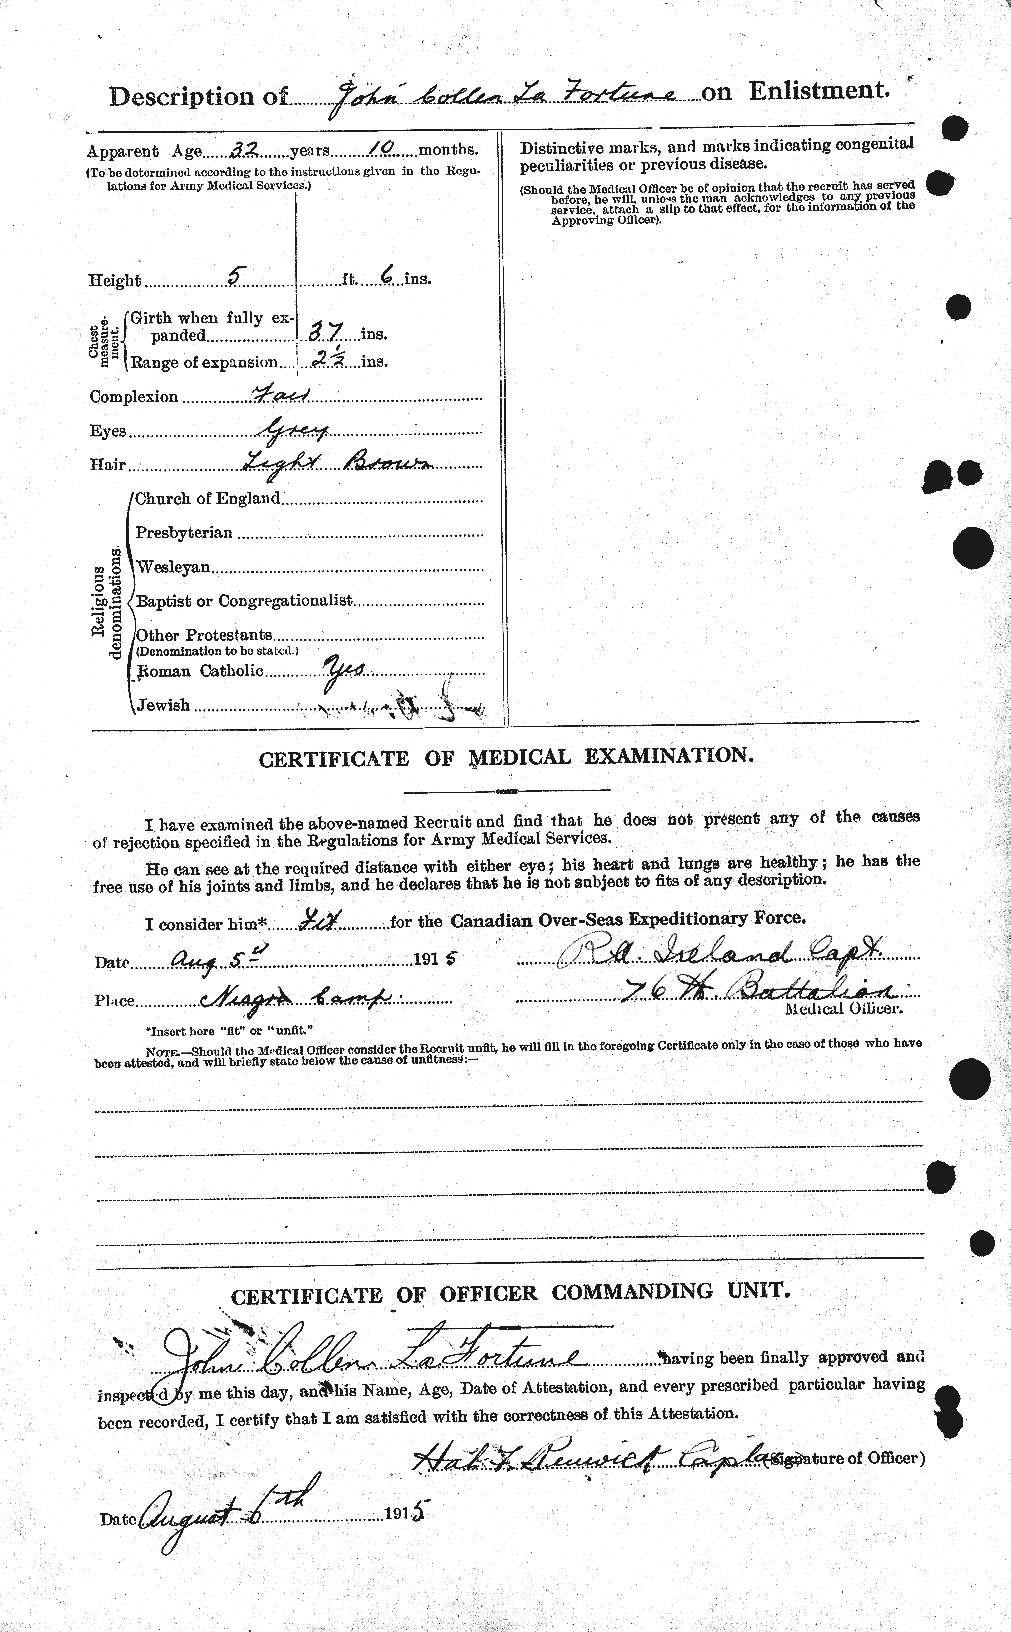 Description of John Collen La Fortune on Enlistment.
Apparent Age 32 years 10 months.
(To be determined according to the instructions given in the Regu-
lations for Army Medical Services.)
Height 5 ft. 6 ins.
Chest
measure-
ment.
Girth when fully ex-
panded 37 ins.
Range of expansion 2½ ins.
Complexion Fair
Eyes Grey
Hair Light Brown
Religious
denominations.
Church of England
Presbyterian
Wesleyan
Baptist or Congregationalist
Other Protestants
(Denomination to be stated.)
Roman Catholic Yes
Jewish
Distinctive marks, and marks indicating congenital
peculiarities or previous disease.
(Should the Medical Officer be of opinion that the recruit has served
before, he will, unless the man acknowledges to any previous
service, attach a slip to that effect, for the information of the
Approving Officer).
CERTIFICATE OF MEDICAL EXAMINATION.
I have examined the above-named Recruit and find that he does not present any of the causes
of rejection specified in the Regulations for Army Medical Services.
He can see at the required distance with either eye; his heart and lungs are healthy; he has the
free use of his joints and limbs, and he declares that he is not subject to fits of any description.
I consider him* Fit for the Canadian Over-Seas Expeditionary Force.
Date Aug 5th 1915 R.A. Ireland Capt.
Place Niagra Camp. 76th Battalion
Medical Officer.
*Insert here "fit" or "unfit."
NOTE.—Should the Medical Officer consider the Recruit unfit, he will fill in the foregoing Certificate only in the case of those who have
been attested, and will briefly state below the cause of unfitness:—
CERTIFICATE OF OFFICER COMMANDING UNIT.
John Collen La Fortune having been finally approved and
inspected by me this day, and his Name, Age, Date of Attestation, and every prescribed particular having
been recorded, I certify that I am satisfied with the correctness of this Attestation.
Renwick Captain (Signature of Officer)
Date August 6th 1915